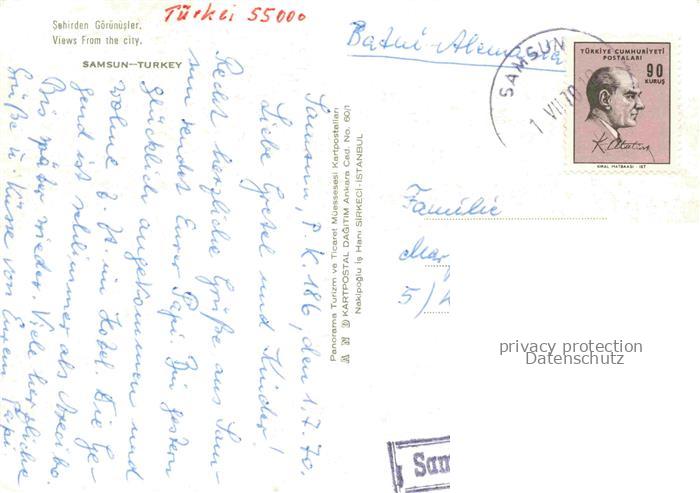 Türkei 55000
Şehirden Görünüşler.
Views From the city.
SAMSUN—TURKEY
Samsun, P.K. 186, den 1.7.70.
Liebe Gretel und Kinder!
Recht herzliche Grüße aus Sam-
sun sendet Eurer Papi. Bin gestern
glücklich angekommen und
wohne z. Zt. im Hotel. Die Ge-
gend ist schlimmer als Arecibo.
Bis später wieder. Viele herzliche
Grüße u. Küsse von Eurem Papi.
Panorama Turizm ve Ticaret Müessesesi Kartpostalları
AND KARTPOSTAL DAĞITIM Ankara Cad. No. 60/1
Nakipoğlu İş Hanı SİRKECİ-İSTANBUL
Batni-Almanya
SAMSUN
1 VII 70
TÜRKİYE CUMHURİYETİ
POSTALARI
90
KURUŞ
K. Atatürk
KIRAL MATBAASI - İST
Familie
Mar
5)
privacy protection
Datenschutz
Sam